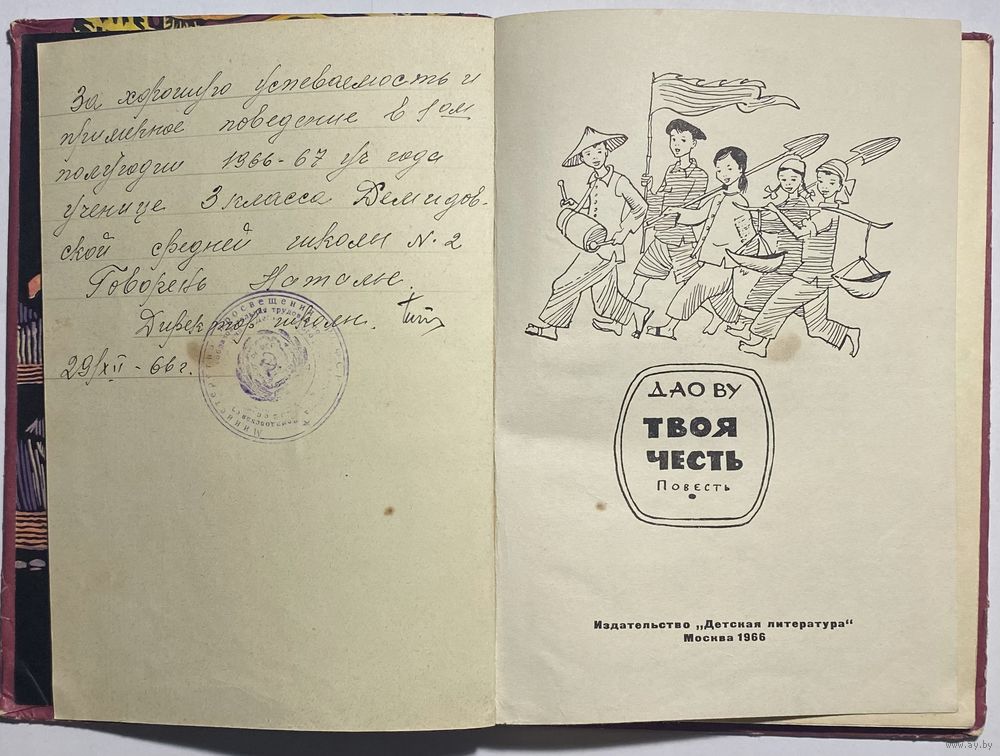 За хорошую успеваемость и
примерное поведение в 1ом
полугодии 1966-67 уч года
ученице 3 класса Демидов-
ской средней школы N. 2
Говорень Наталье.
Директор школы.
29/XII - 66 г.
ДАО ВУ
ТВОЯ
ЧЕСТЬ
Повесть
Издательство „Детская литература“
Москва 1966
www.ay.by